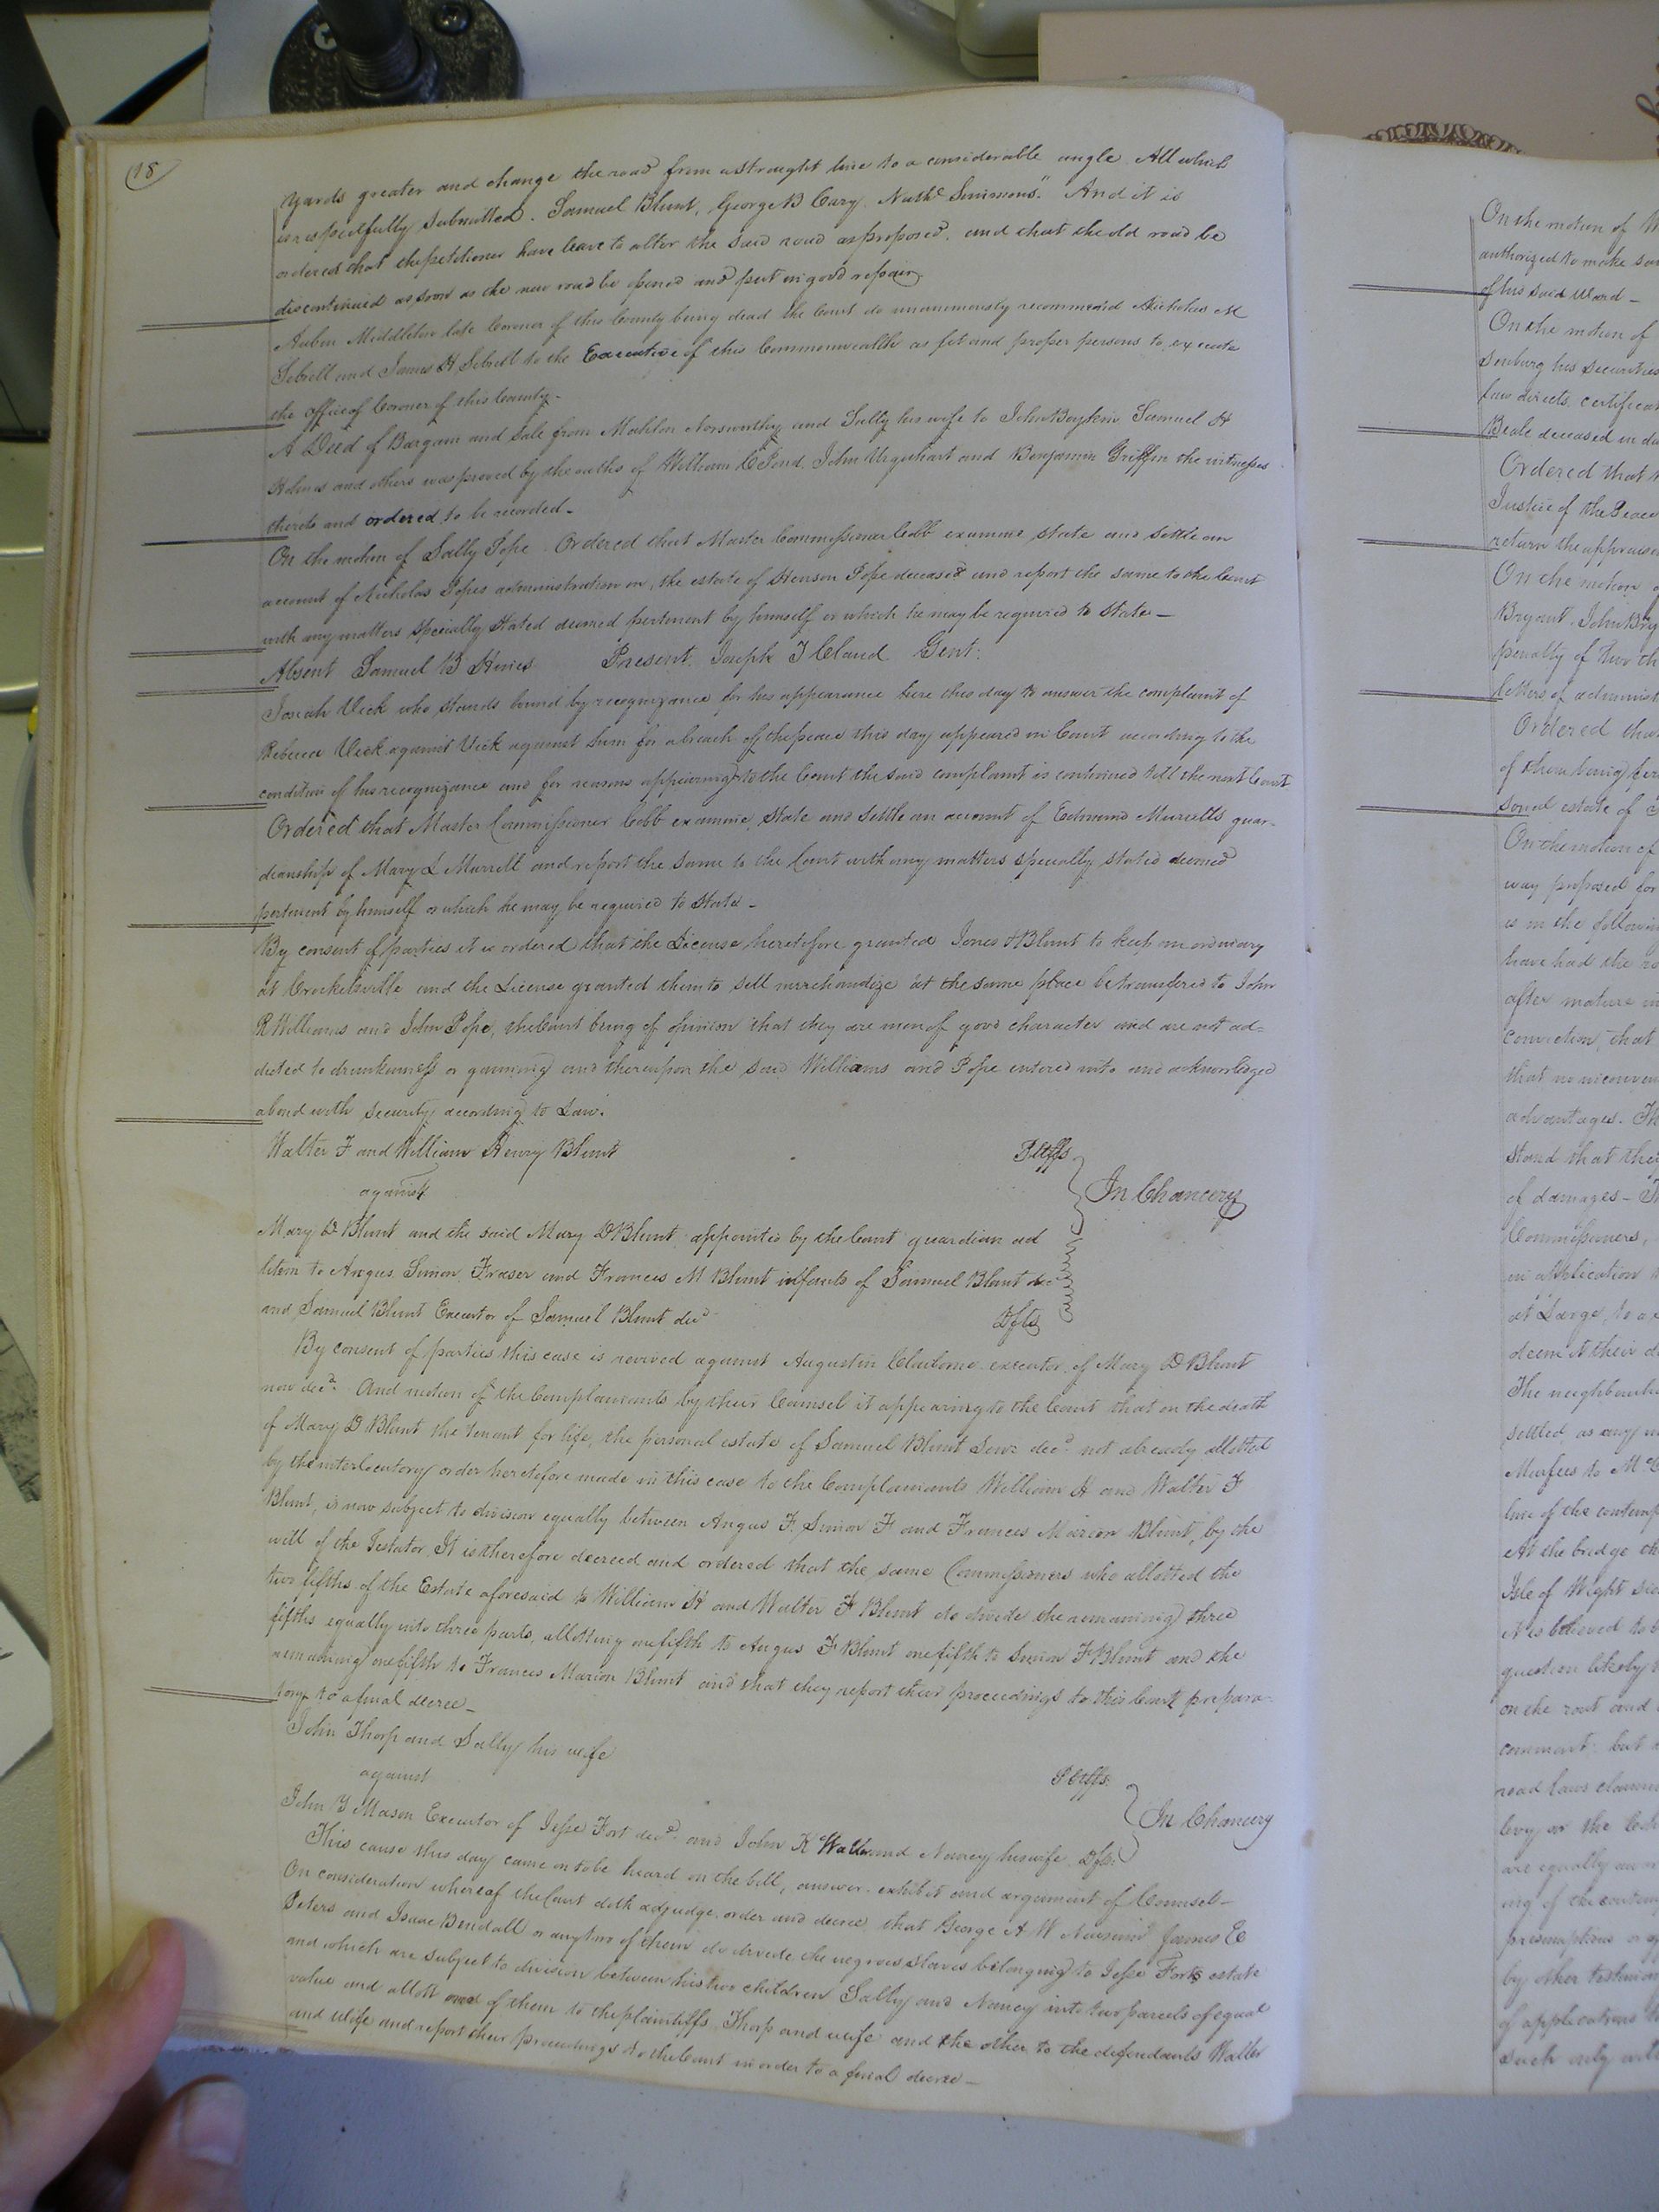 18
yards greater and change the road from a straight line to a considerable angle All which
is respectfully submitted. Samuel Blunt, George B Cary. Nathl Simmons." And it is
ordered that the petitioner have leave to alter the said road as proposed, and that the old road be
discontinued as soon as the new road be opened and put in good repair
Middleton late Coroner of this County being dead the Court do unanimously recommend Nicholas M
Sebrell and James H Sebrell to the Executive of this Commonwealth as fit and proper persons to execute
the office of Coroner of this County-
A Deed of Bargain and Sale from Mahlon Norsworthy and Sally his wife to John Boykin Samuel H
Holmes and others was proved by the oaths of William C Pond, John Urquhart and Benjamin Griffin the witnesses
thereto and ordered to be recorded-
On the motion of Sally Pope. Ordered that Master Commissioner Cobb examine state and settle an
account of Nicholas Popes administration on the estate of Henson Pope deceased and report the same to the Court
with any matters specially stated deemed pertinent by himself or which he may be required to state-
Absent Samuel B Hines Present Joseph T Claud Gent:
Josiah Vick who stands bound by recognizance for his appearance here this day to answer the complaint of
Rebecca Vick against Vick against him for a breach of the peace this day appeared in Court according to the
condition of his recognizance and for reasons appearing to the Court the said complaint is continued till the next Court
Ordered that Master Commissioner Cobb examine, state and settle an account of Edmund Murrells guar-
dianship of Mary L Murrell and report the same to the Court with any matters specially stated deemed
pertinent by himself or which he may be required to state-
By consent of parties it is ordered that the License heretofore granted Jones & Blunt to keep an ordinary
at Crocketsville and the License granted them to sell merchandize at the same place be transfered to John
R Williams and John Pope, the Court being of opinion that they are men of good character and are not ad=
dicted to drunkenness or gaming and thereupon the said Williams and Pope entered into and acknowledged
a bond with security according to Law.
Walter F and William Henry Blunt Pltffs
against In Chancery
Mary D Blunt and the said Mary D Blunt appointed by the Court guardian ad
litem to Angus, Simon Fraser and Frances M Blunt infants of Samuel Blunt dec
and Samuel Blunt Executor of Samuel Blunt decd Dfts
By consent of parties this case is revived against Augustin Claiborne executor of Mary D Blunt
now decd. And motion of the Complainants by their Counsel it appearing to the Court that on the death
of Mary D Blunt the tenant for life, the personal estate of Samuel Blunt Senr decd. not already allotted
by the interlocutory order heretofore made in this case to the Complainants William H and Walter F
Blunt, is now subject to division equally between Angus F. Simon F and Frances Marion Blunt, by the
will of the Testator. It is therefore decreed and ordered that the same Commissioners who allotted the
two fifths of the Estate aforesaid to William H and Walter F Blunt do divide the remaining three
fifths equally into three parts, allotting one fifth to Angus F Blunt one fifth to Simon F Blunt and the
remaining one fifth to Frances Marion Blunt and that they report their proceedings to this Court prepara-
tory to a final decree-
John Thorp and Sally his wife
against Pltffs. In Chancery
John Y Mason Executor of Jesse Fort decd. and John K Waller and Nancy his wife Dfts:
This cause this day came on to be heard on the bill, answer. exhibit and argument of Counsel-
On consideration whereof the Court doth adjudge, order and decree that George A W Newsum James E
Peters and Isaac Bendall or any two of them do divide the negroes slaves belonging to Jesse Forts estate
and which are subject to division between his two children Sally and Nancy into two parcels of equal
value and allott one of them to the plaintiffs Thorp and wife and the other to the defendants Waller
and Wife and report their proceedings to the Court in order to a final decree-
On the motion of
authorized to make
of his said Ward-
On the motion of
his securities
law directs. certificat
Beale deceased in
Ordered that
Justice of the Peace
return the appraise
On the motion
Bryant. John Bry
penalty of two th
letters of administ
Ordered tha
of them being
sonal estate of
On the motion of
way proposed for
is in the follow
have had the
after mature
conviction, that
that no inconven
advantages. Th
stand that the
of damages-
Commissioners,
in application
at Large, to
deem it their
The neighbourh
settled, as any
Murfees to M
line of the contemp
At the bridge th
Isle of Wight
is believed to
question likely
on the rout and
comment. but
road laws
levy on the
are equally
presumptions or
by other testimon
of applications
such only